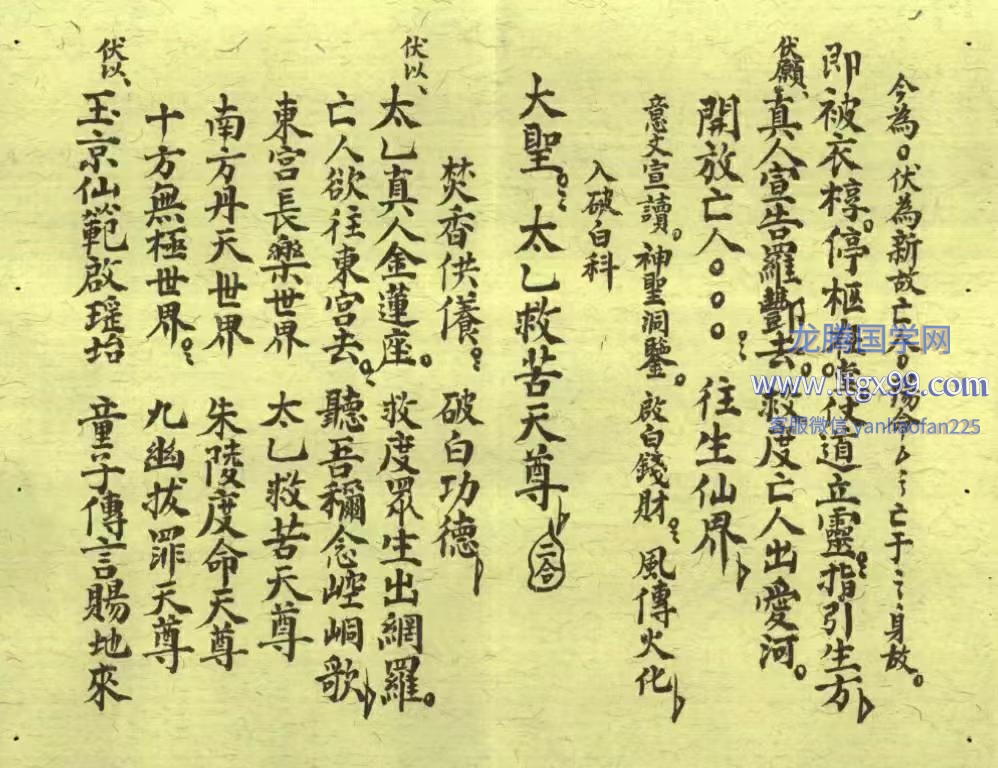 今為。伏為新故亡人。陽命 亡于 身故。
即被衣椁。停柩 道立靈。指引生方
伏願、真人宣告羅酆去。救度亡人出愛河。
開放亡人。。。往生仙界
意文宣讀。神聖洞鑒。啟白錢財。風傳火化
入破白科
大聖。太乙救苦天尊 二合
焚香供養。破白功德
伏以、太乙真人金蓮座。救度眾生出網羅。
亡人欲往東宮去。聽吾稱念崆峒歌
東宮長樂世界 太乙救苦天尊
南方丹天世界 朱陵度命天尊
十方無極世界。九幽拔罪天尊
伏以、玉京仙範啟瑶坮 童子傳言賜地來
龙腾国学网
www.ltgx99.com
客服微信 yanhaofan225